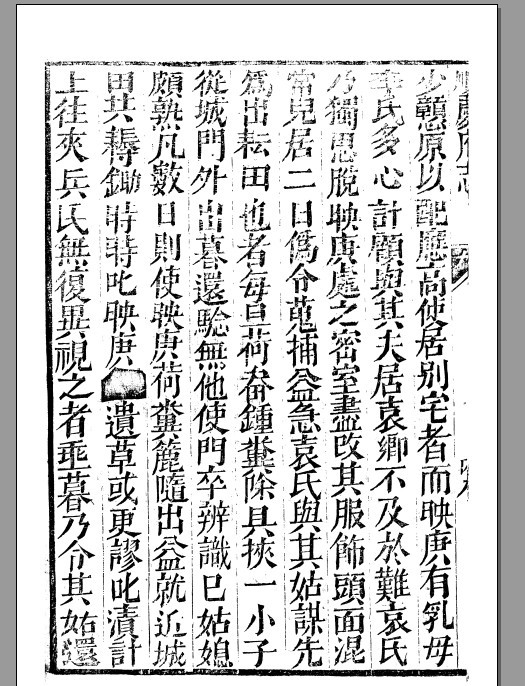 順慶府志
少戇原以配廳而使居别宅者而映庚有乳母
氏多心計顧與其夫居袁鄉不及於難袁氏
乃獨思脫映庚處之密室盡改其服飾頭面混
常兒居二日偽令蒐捕益急袁氏與其姑謀先
為出耘田也者每旦荷畚鍾糞除具挾一小子
從城門外出暮還驗無他使門卒辨識巳姑媳
頗熟凡數日則使映庚荷糞簏隨出益就近城
田共耨鋤時時叱映庚遺草或更謬叱瀆計
上往來兵民無復異視之者乗暮乃令其姑還